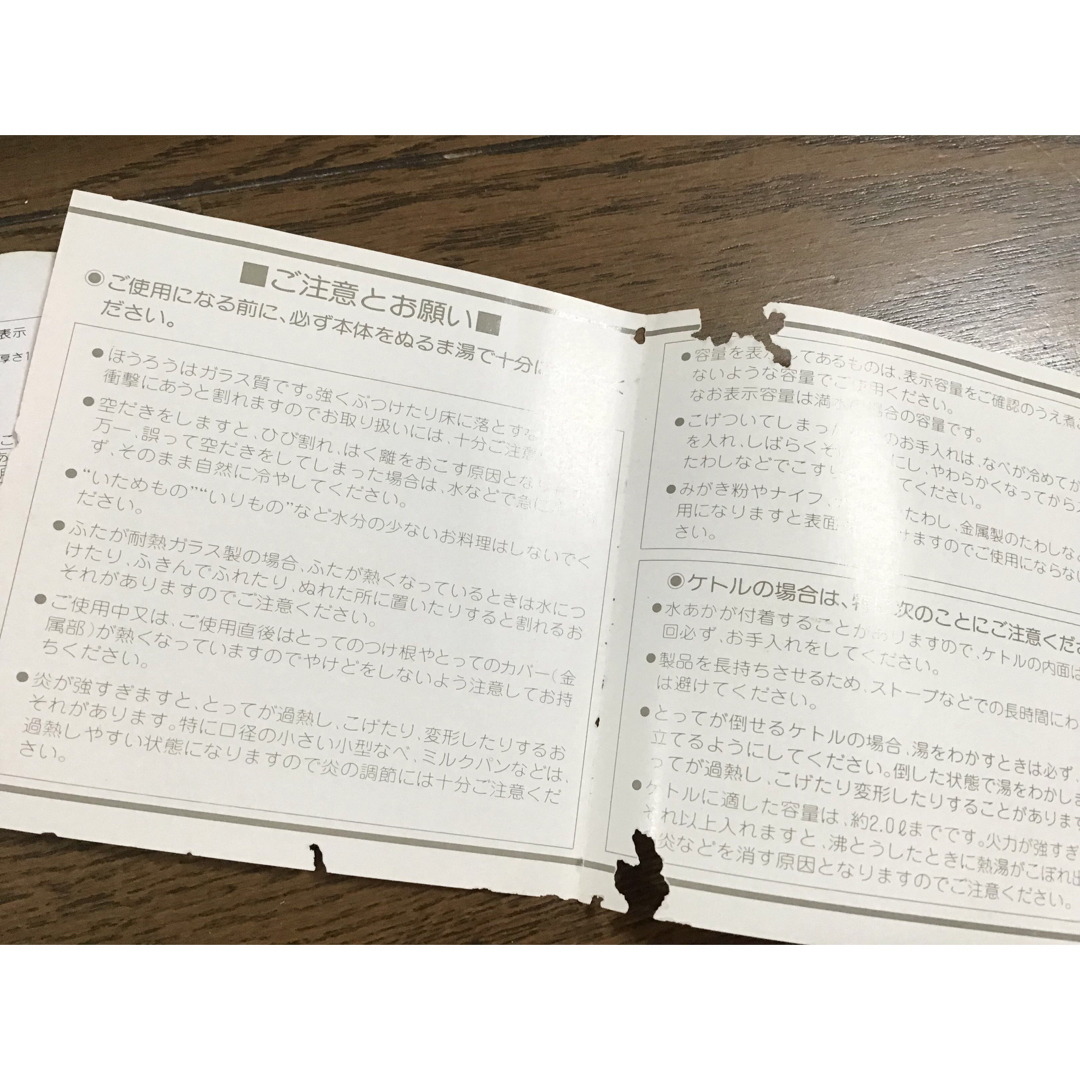 ■ご注意とお願い■
●ご使用になる前に、必ず本体をぬるま湯で十分に
ださい。
●ほうろうはガラス質です。強くぶつけたり床に落とすな
衝撃にあうと割れますのでお取り扱いには、十分ご注意
●空だきをしますと、ひび割れ、はく離をおこす原因となり
万一、誤って空だきをしてしまった場合は、水などで急に
ず、そのまま自然に冷やしてください。
●"いためもの""いりもの"など水分の少ないお料理はしないでく
ださい。
●ふたが耐熱ガラス製の場合、ふたが熱くなっているときは水につ
けたり、ふきんでふれたり、ぬれた所に置いたりすると割れるお
それがありますのでご注意ください。
●ご使用中又は、ご使用直後はとってのつけ根やとってのカバー(金
属部)が熱くなっていますのでやけどをしないよう注意してお持
ちください。
●炎が強すぎますと、とってが過熱し、こげたり、変形したりするお
それがあります。特に口径の小さい小型なべ、ミルクパンなどは、
過熱しやすい状態になりますので炎の調節には十分ご注意くだ
さい。
●容量を表 ってあるものは、表示容量をご確認のうえ煮
ないような容量でご使用ください。
なお表示容量は満水 場合の容量です。
●こげついてしまっ のお手入れは、なべが冷めてか
を入れ、しばらくそ にし、やわらかくなってから
たわしなどでこす てください。
●みがき粉やナイフ、 たわし、金属製のたわしな
用になりますと表面 けますのでご使用にならな
さい。
●ケトルの場合は、特 次のことにご注意くだ
●水あかが付着することがありますので、ケトルの内面は
回必ず、お手入れをしてください。
●製品を長持ちさせるため、ストーブなどでの長時間にわ
は避けてください。
●とってが倒せるケトルの場合、湯をわかすときは必ず、
立てるようにしてください。倒した状態で湯をわかしま
ってが過熱し、こげたり変形したりすることがあります
●ケトルに適した容量は、約2.0ℓまでです。火力が強すぎ
それ以上入れますと、沸とうしたときに熱湯がこぼれ出
炎などを消す原因となりますのでご注意ください。
表示
厚さ1